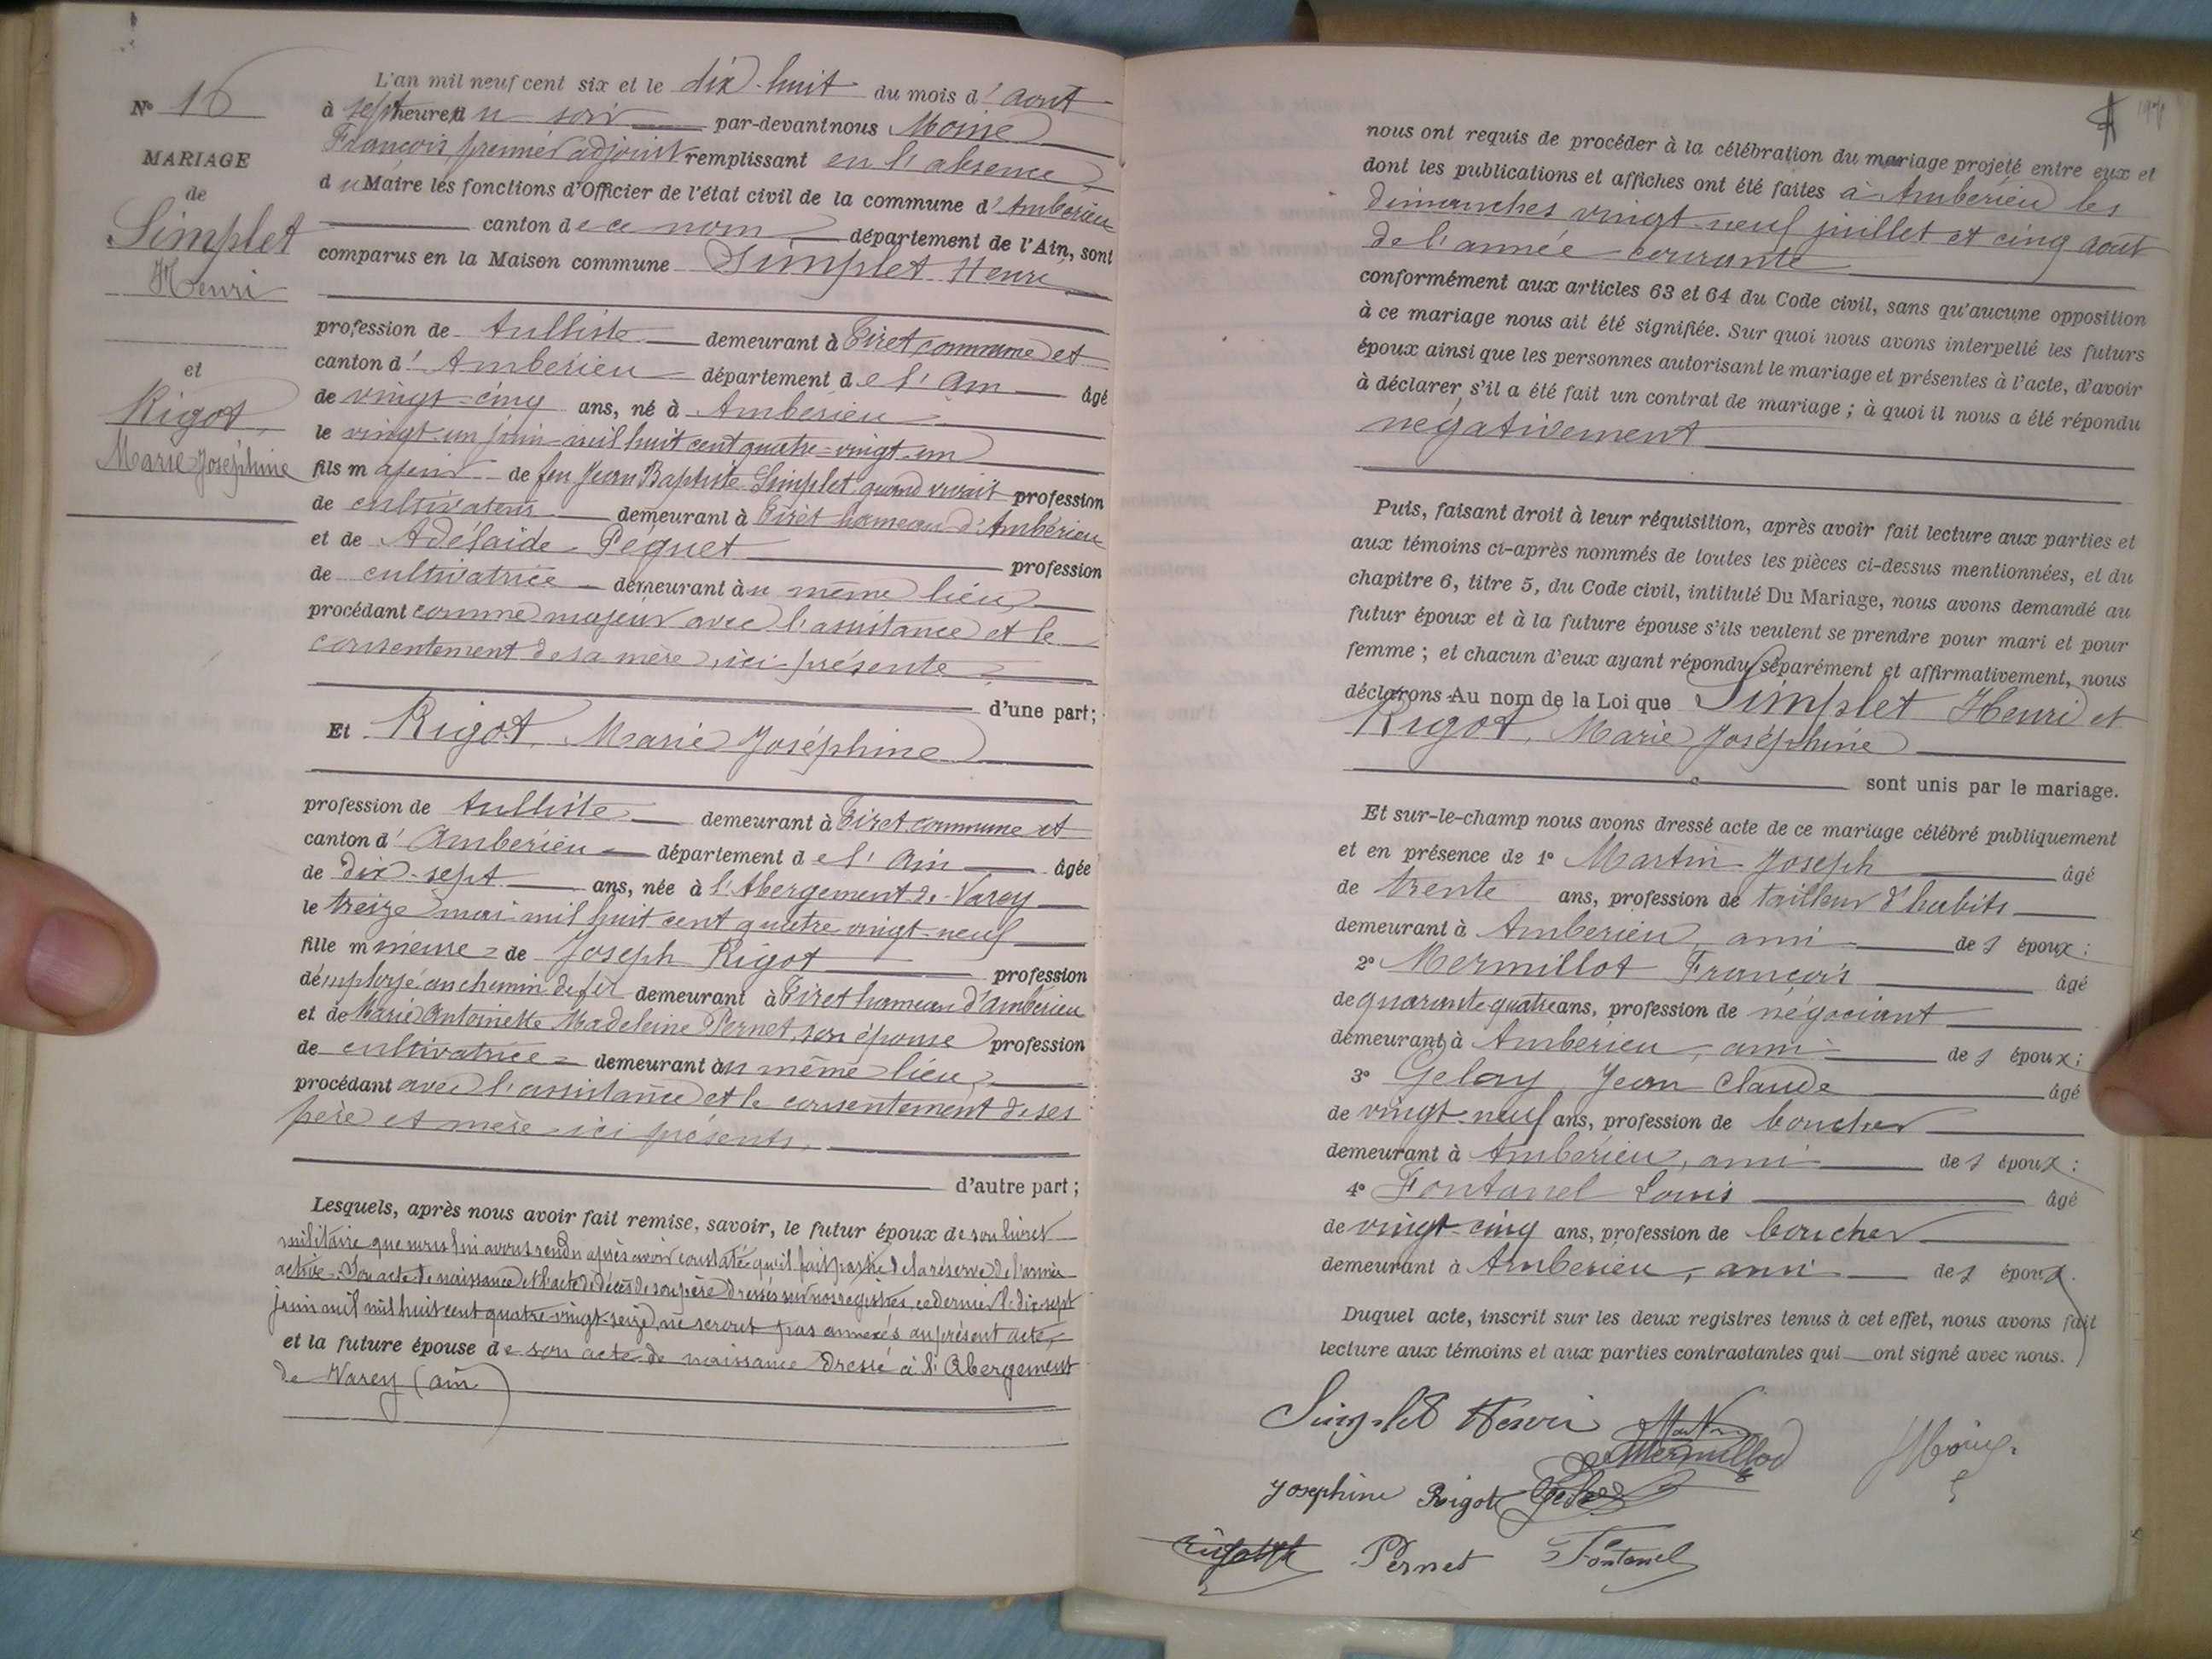 L'an mil neuf cent six et le dix-huit du mois d'aout
à sept heure du soir par-devant nous Moine
François premier adjoint remplissant en l'absence
du Maire les fonctions d'Officier de l'état civil de la commune d'Ambérieu
canton de ce nom département de l'Ain, sont
comparus en la Maison commune Simplet Henri
profession de tulliste demeurant à Tiret commune et
canton d'Ambérieu département de l'Ain âgé
de vingt-cinq ans, né à Ambérieu
le vingt-un juin mil huit cent quatre-vingt-un
fils majeur de feu Jean Baptiste Simplet quand vivait profession
de cultivateur demeurant à Tiret hameau d'Ambérieu
et de Adélaïde Péguet profession
de cultivatrice demeurant àu même lieu
procédant comme majeur avec l'assistance et le
consentement de sa mère, ici présente
d'une part;
Et Rigot, Marie Joséphine
profession de tulliste demeurant à Tiret commune et
canton d'Ambérieu département de l'Ain âgée
de dix-sept ans, née à l'Abergement de Varey
le treize mai mil huit cent quatre vingt-neuf
fille mineure de Joseph Rigot profession
d'employé au chemin de fer demeurant à Tiret hameau d'Ambérieu
et de Marie Antoinette Madeleine Pernet, son épouse profession
de cultivatrice demeurant àu même lieu
procédant avec l'assistance et le consentement de ses
père et mère ici présents,
d'autre part;
Lesquels, après nous avoir fait remise, savoir, le futur époux de son livret
militaire que nous lui avons rendu après avoir constaté qu'il fait partie de la réserve de l'armée
active. Son acte de naissance et l'acte de décès de son père dressés sur nos registres, ce dernier le dix sept
juin mil mil huit cent quatre-vingt-seize, ne seront pas annexés au présent acte,
et la future épouse de son acte de naissance dressé à l'Abergement
de Varey (Ain)
N° 16
MARIAGE
de
Simplet
Henri
et
Rigot,
Marie Joséphine
nous ont requis de procéder à la célébration du mariage projeté entre eux et
dont les publications et affiches ont été faites à Ambérieu les
dimanches vingt-neuf juillet et cinq aout
de l'année courante
conformément aux articles 63 et 64 du Code civil, sans qu'aucune opposition
à ce mariage nous ait été signifiée. Sur quoi nous avons interpellé les futurs
époux ainsi que les personnes autorisant le mariage et présentes à l'acte, d'avoir
à déclarer, s'il a été fait un contrat de mariage; à quoi il nous a été répondu
négativement
Puis, faisant droit à leur réquisition, après avoir fait lecture aux parties et
aux témoins ci-après nommés de toutes les pièces ci-dessus mentionnées, et du
chapitre 6, titre 5, du Code civil, intitulé Du Mariage, nous avons demandé au
futur époux et à la future épouse s'ils veulent se prendre pour mari et pour
femme; et chacun d'eux ayant répondu séparément et affirmativement, nous
déclarons Au nom de la Loi que Simplet Henri et
Rigot, Marie Joséphine
sont unis par le mariage.
Et sur-le-champ nous avons dressé acte de ce mariage célébré publiquement
et en présence de 1° Martin Joseph âgé
de trente ans, profession de tailleur d'habits
demeurant à Ambérieu, ami des époux:
2° Mermillot François âgé
de quarante quatre ans, profession de négociant
demeurant à Ambérieu, ami des époux;
3° Gelay, Jean Claude âgé
de vingt-neuf ans, profession de boucher
demeurant à Ambérieu, ami des époux:
4° Fontanel Louis âgé
de vingt-cinq ans, profession de boucher
demeurant à Ambérieu, ami des époux.
Duquel acte, inscrit sur les deux registres tenus à cet effet, nous avons fait
lecture aux témoins et aux parties contractantes qui ont signé avec nous.
Simplet Henri Martin
Mermillod Moine
Josephine Rigot Gelay
Pernet Fontanel